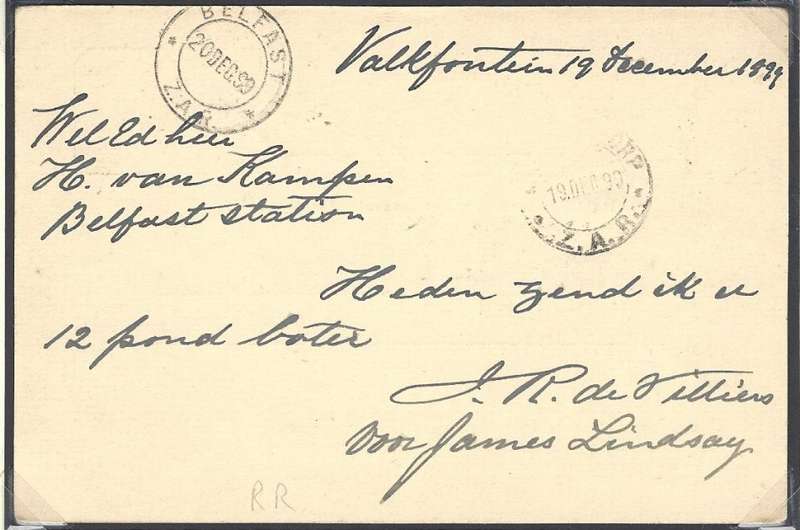 BELFAST
20 DEC. 99
Z.A.R.
Valkfontein 19 December 1899
Wel Ed heer
H. van Kampen
Belfast station
19 DEC 99
Z.A.R.
Heden zend ik u
12 pond boter
J. R. de Villiers
voor James Lindsay
RR